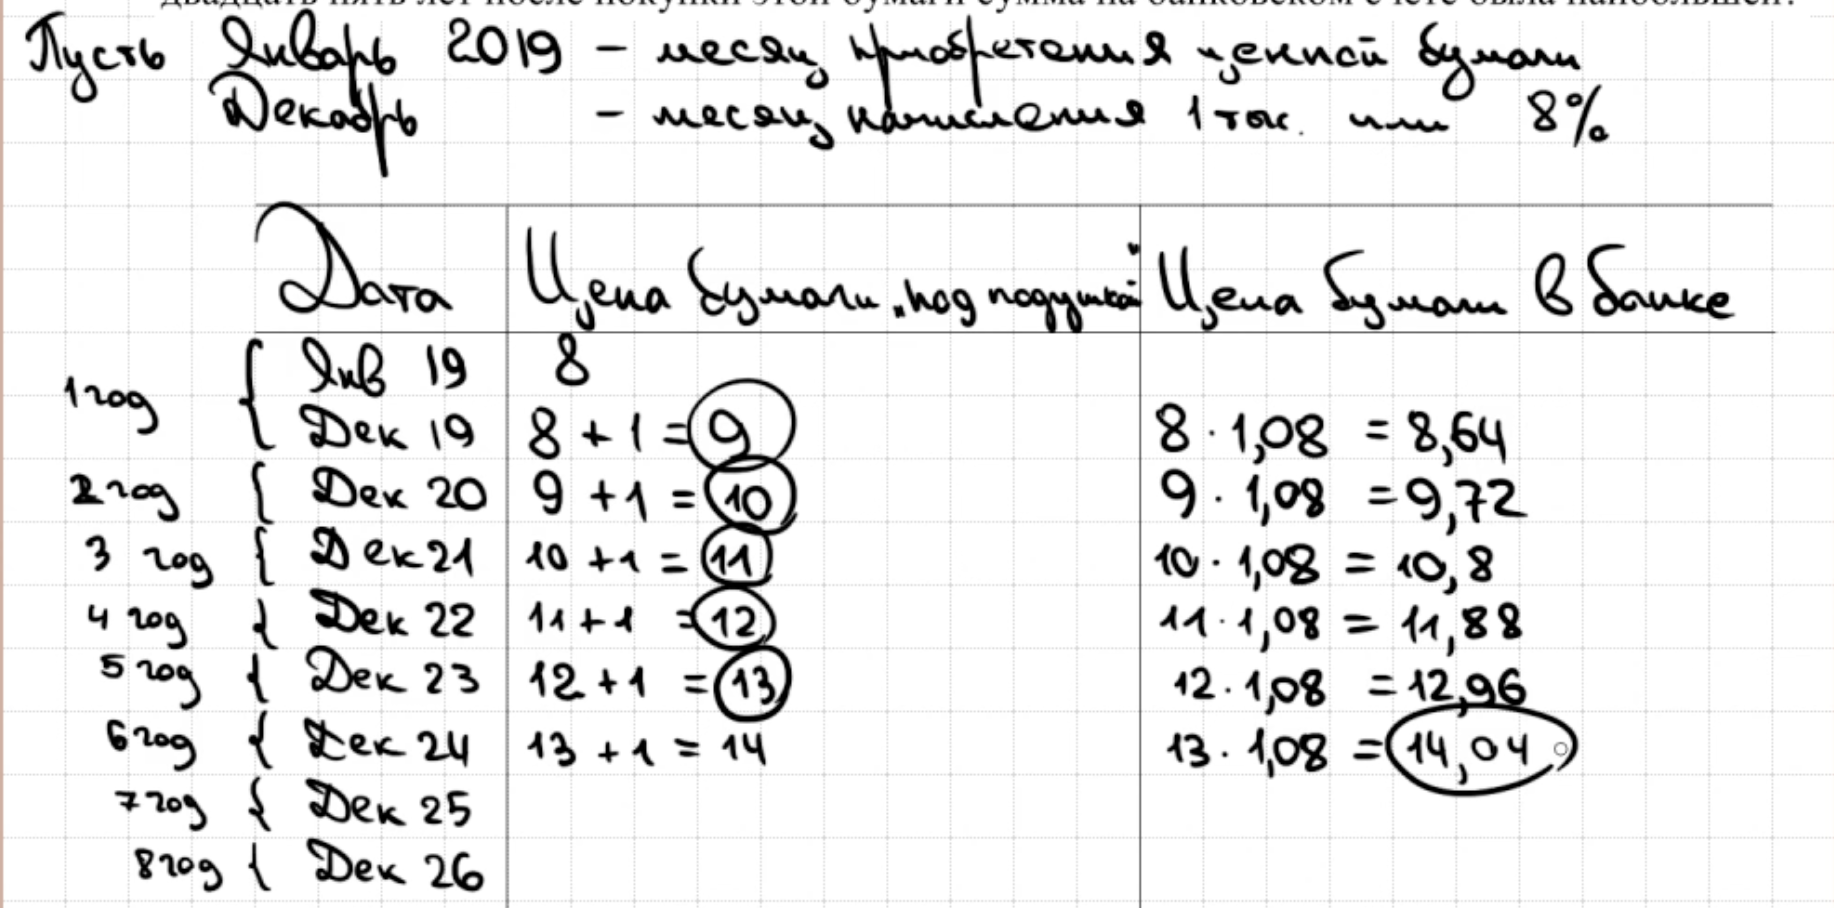 двадцать пять лет после покупки этой бумаги сумма на банковском счёте была наибольшей?
Пусть Январь 2019 - месяц приобретения ценной бумаги
Декабрь - месяц начисления 1 тыс. или 8%
Дата Цена бумаги „под подушкой" Цена бумаги в банке
1 год { Янв 19 8
Дек 19 8 + 1 = 9 8 · 1,08 = 8,64
2 год { Дек 20 9 + 1 = 10 9 · 1,08 = 9,72
3 год { Дек 21 10 + 1 = 11 10 · 1,08 = 10,8
4 год { Дек 22 11 + 1 = 12 11 · 1,08 = 11,88
5 год { Дек 23 12 + 1 = 13 12 · 1,08 = 12,96
6 год { Дек 24 13 + 1 = 14 13 · 1,08 = 14,04
7 год { Дек 25
8 год { Дек 26